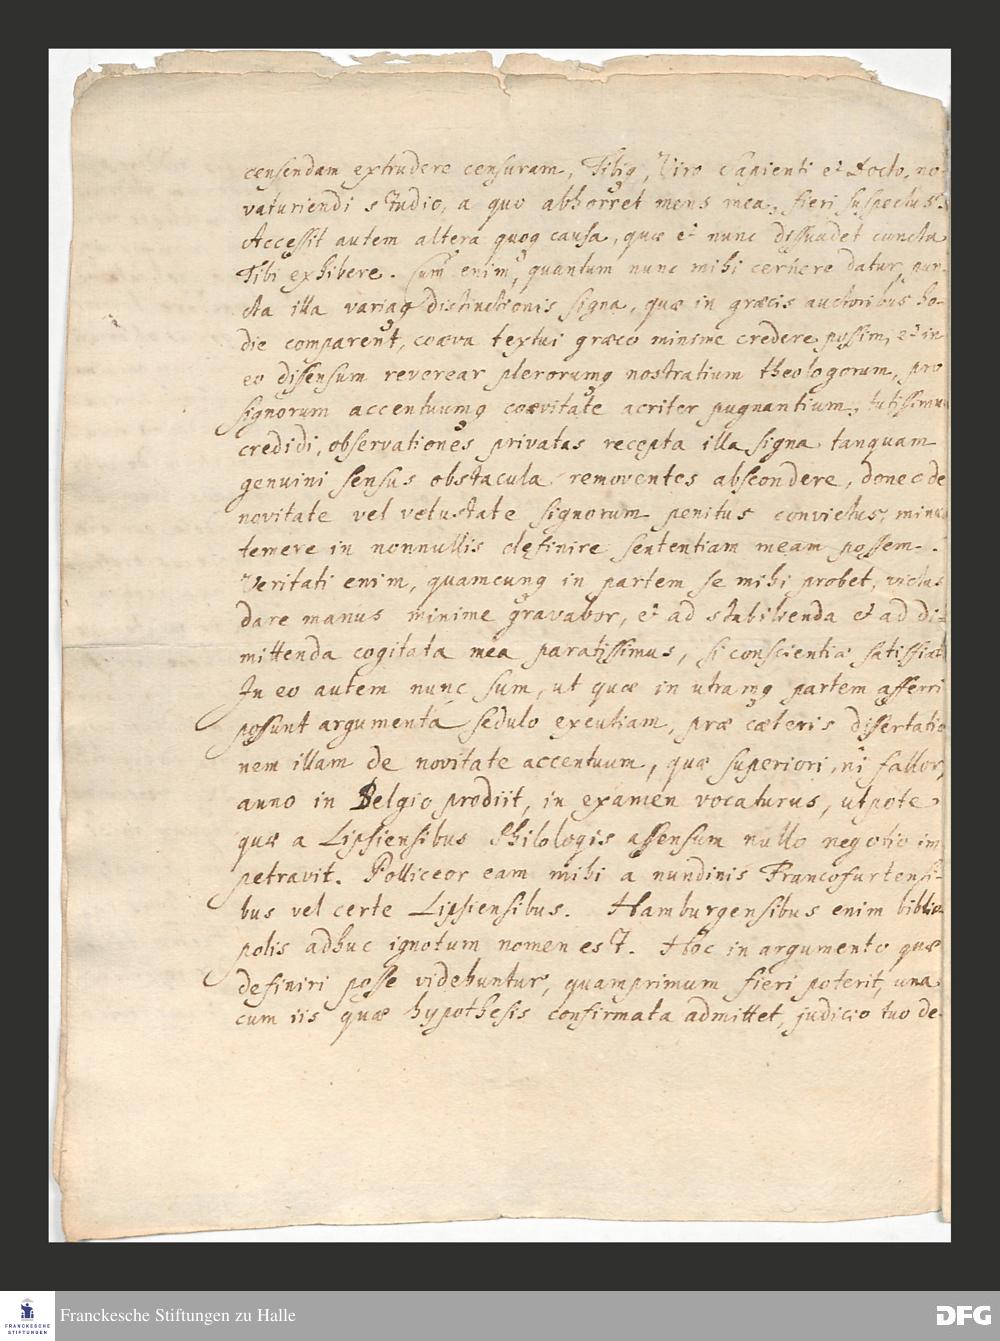 censendam extrudere censuram, Tibiq, Viro Sapienti et Docto, no-
vaturiendi studio, a quo abhorret mens mea, fieri suspectus.
Accessit autem altera quoq causa, quæ et nunc dissuadet cuncta
Tibi exhibere. Cum enim, quantum nunc mihi cernere datur, pun-
cta illa variaq distinctionis signa, quæ in græcis auctoribus ho-
die comparent, coæva textui græco minime credere possim, et in
eo dissensum reverear plerorumq nostratium theologorum, pro
signorum accentuumq coævitate acriter pugnantium, tutissimum
credidi, observationes privatas recepta illa signa tanquam
genuini sensus obstacula removentes abscondere, donec de
novitate vel vetustate signorum penitus convictus, minus
temere in nonnullis definire sententiam meam possem.
Veritati enim, quamcunq in partem se mihi probet, victas
dare manus minime gravabor, et ad stabilienda et ad di-
mittenda cogitata mea paratissimus, si conscientiæ satisfiat.
In eo autem nunc sum, ut quæ in utramq partem afferri
possunt argumenta sedulo excutiam, præ cæteris dissertatio
nem illam de novitate accentuum, quæ superiori, ni fallor,
anno in Belgio prodiit, in examen vocaturus, utpote
quæ a Lipsiensibus Philologis assensum nullo negotio im
petravit. Polliceor eam mihi a nundinis Francofurtensi-
bus vel certe Lipsiensibus. Hamburgensibus enim biblio-
polis adhuc ignotum nomen est. Hoc in argumento quæ
definiri posse videbuntur, quamprimum fieri poterit, una
cum iis quæ hypothesis confirmata admittet, judicio tuo de-
Franckesche Stiftungen zu Halle
FRANCKESCHE
STIFTUNGEN
DFG